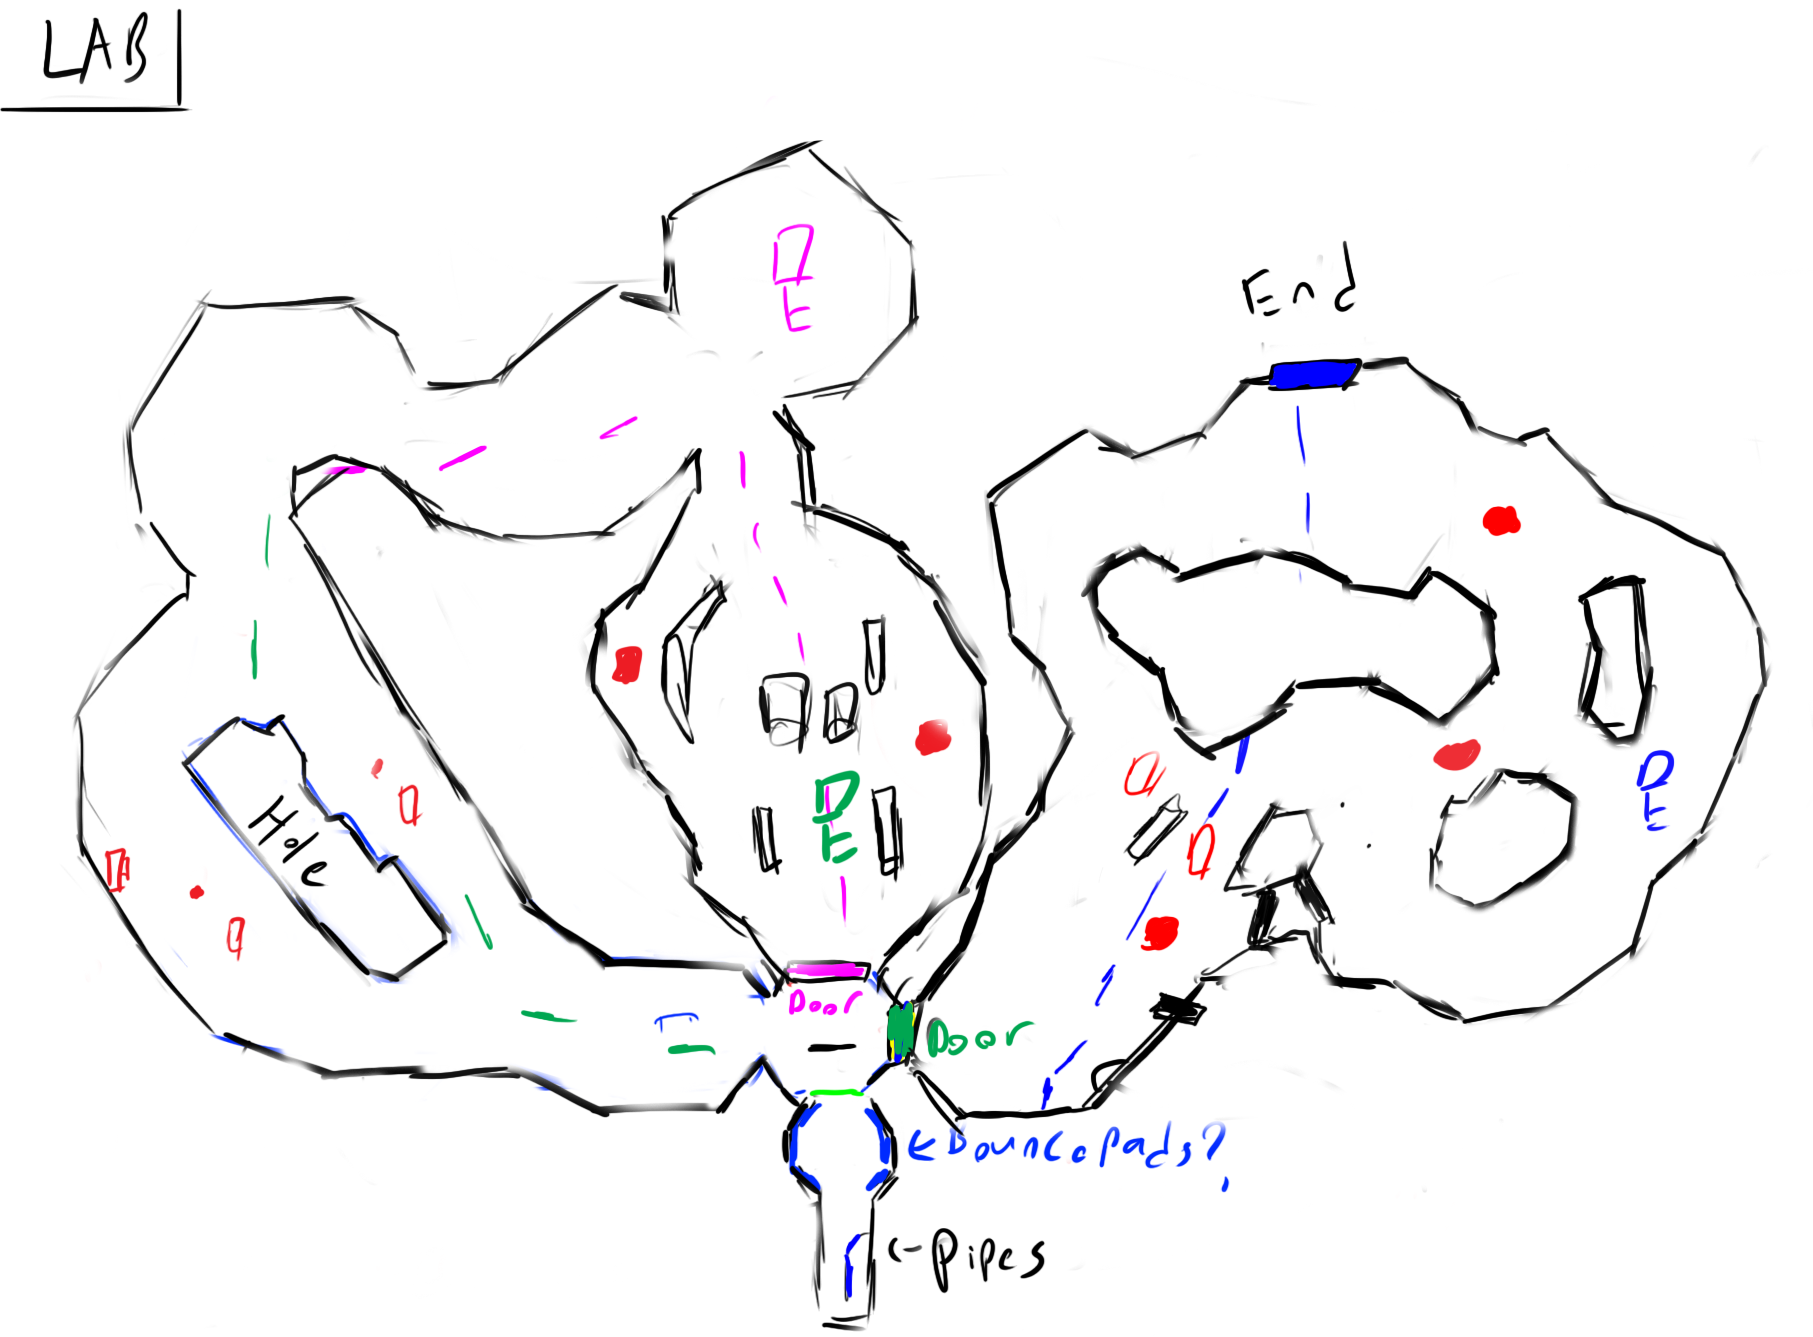 LAB
D
E
End
Hole
D
E
D
E
Door
Door
← Bouncepads?
<- Pipes